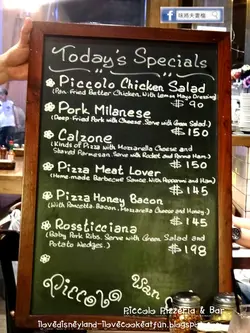 玩轉米奇檔
Today's Specials
Piccolo Chicken Salad
(Pan-Fried Better Chicken, With Lemon Mayo Dressing)
$ 90
Pork Milanese
(Deep-Fried Pork with Cheese. Serve with Green Salad.)
$ 150
Calzone
(Kinds of Pizza with Mozzarella Cheese and
Shaved Parmesan. Serve with Rocket and Parma Ham.)
$ 150
Pizza Meat Lover
(Home-made Barbecue Sauce. With Pepperoni and Ham)
$ 145
Pizza Honey Bacon
(With Pancetta Bacon, Mozzarella Cheese and Honey.)
$ 145
Rossticciana
(Baby Pork Ribs. Serve with Green Salad and
Potato Wedges.)
$ 198
Piccolo
Piccolo Pizzeria & Bar
ilovedisneyland-ilovecookeatfun.blogspot.hk